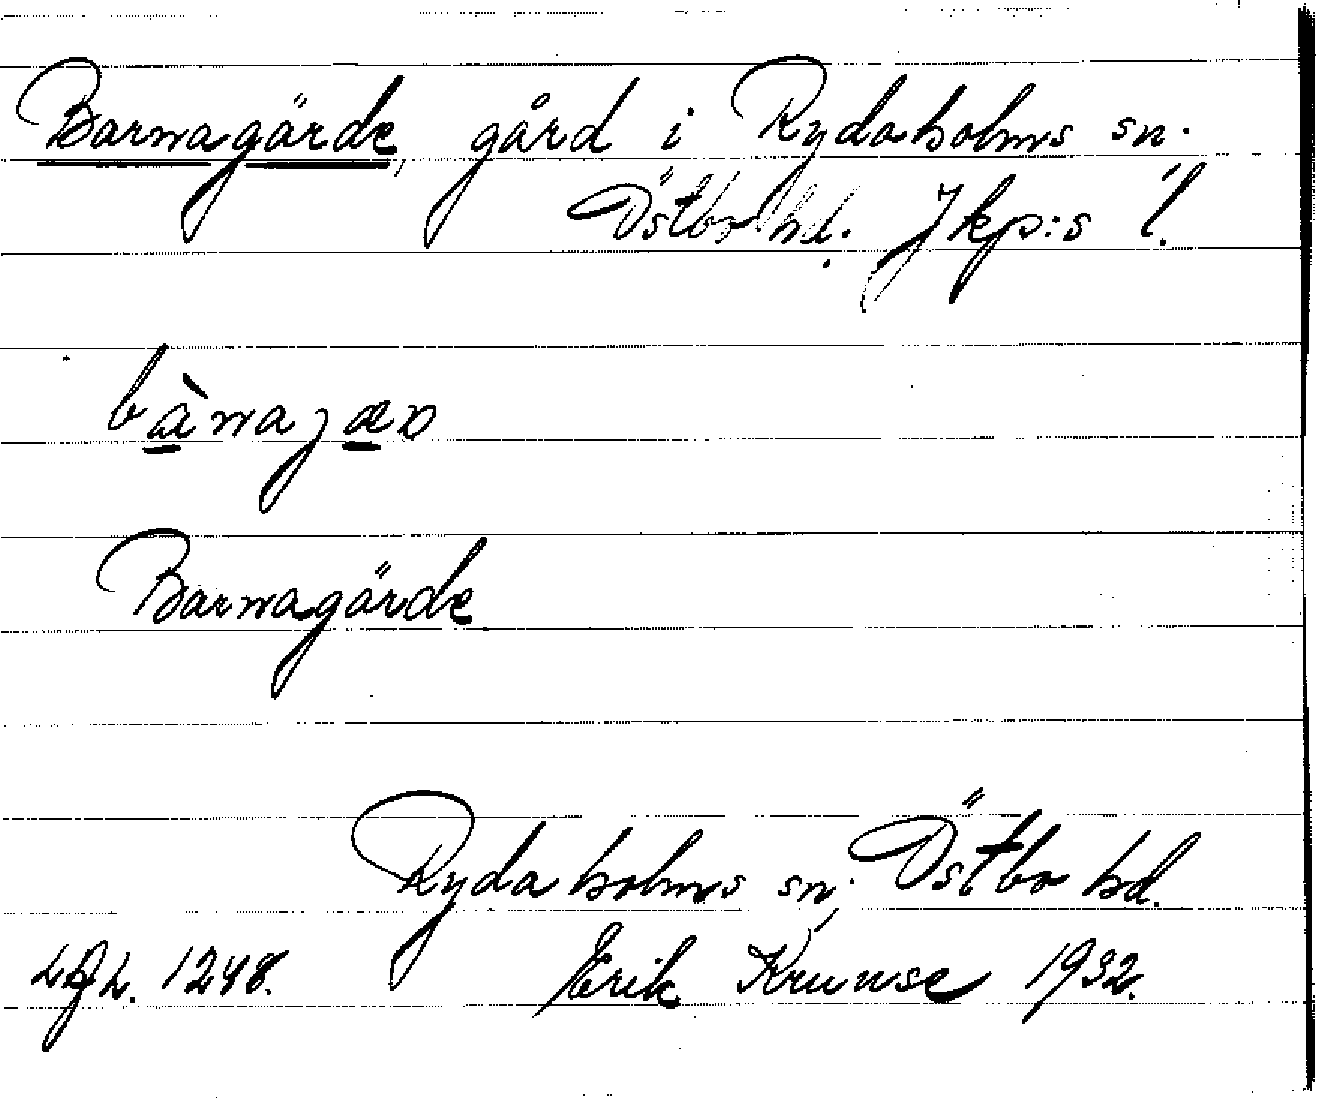 Barnagärde, gård i Rydaholms sn.
Östbo hd. Jkp:s l.
bàrnajæ
Barnagärde
Rydaholms sn, Östbo hd.
1248. Erik Krunse 1932.